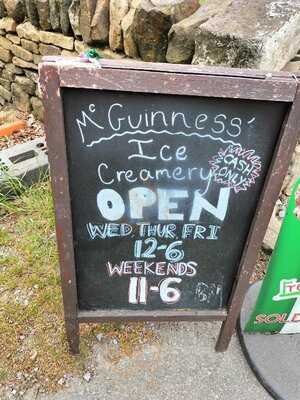 McGuinness'
Ice
Creamery
CASH
ONLY
OPEN
WED THUR FRI
12-6
WEEKENDS
11-6
SOLD